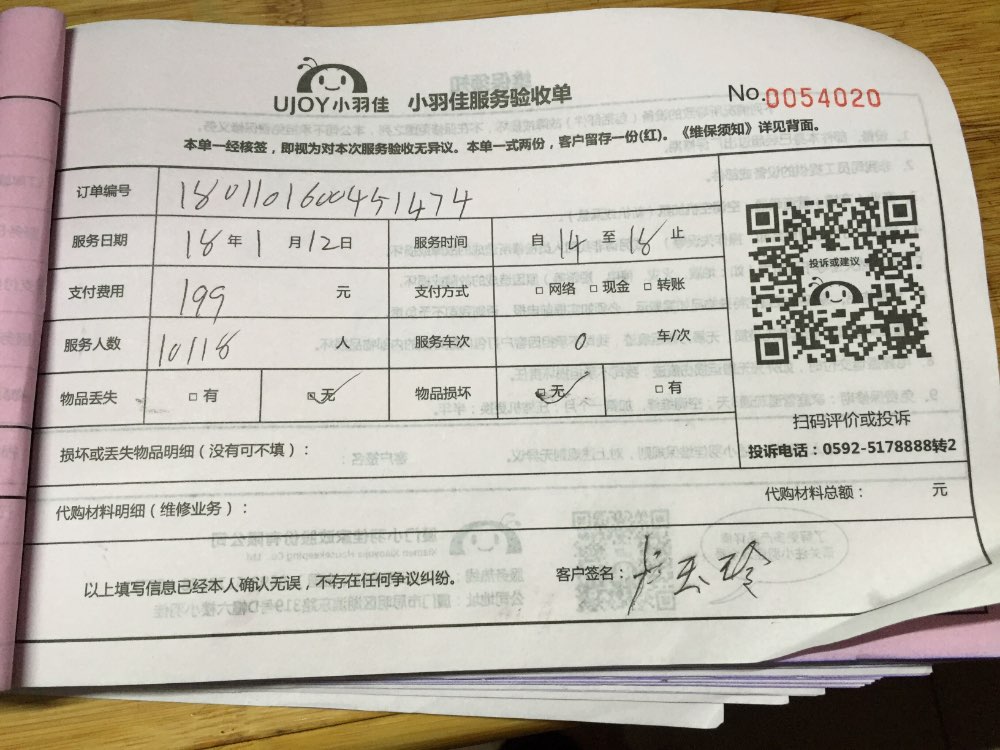 UJOY小羽佳 小羽佳服务验收单 No.0054020
本单一经核签，即视为对本次服务验收无异议。本单一式两份，客户留存一份(红)。《维保须知》详见背面。
订单编号 1801101600451474
服务日期 18年1月12日 服务时间 自14至18止
支付费用 199元 支付方式 □网络 □现金 □转账
服务人数 10118 服务车次 0 车/次
物品丢失 □有 □无 物品损坏 □无 □有
投诉或建议
扫码评价或投诉
投诉电话：0592-5178888转2
损坏或丢失物品明细（没有可不填）：
代购材料明细（维修业务）： 代购材料总额： 元
以上填写信息已经本人确认无误，不存在任何争议纠纷。 客户签名：